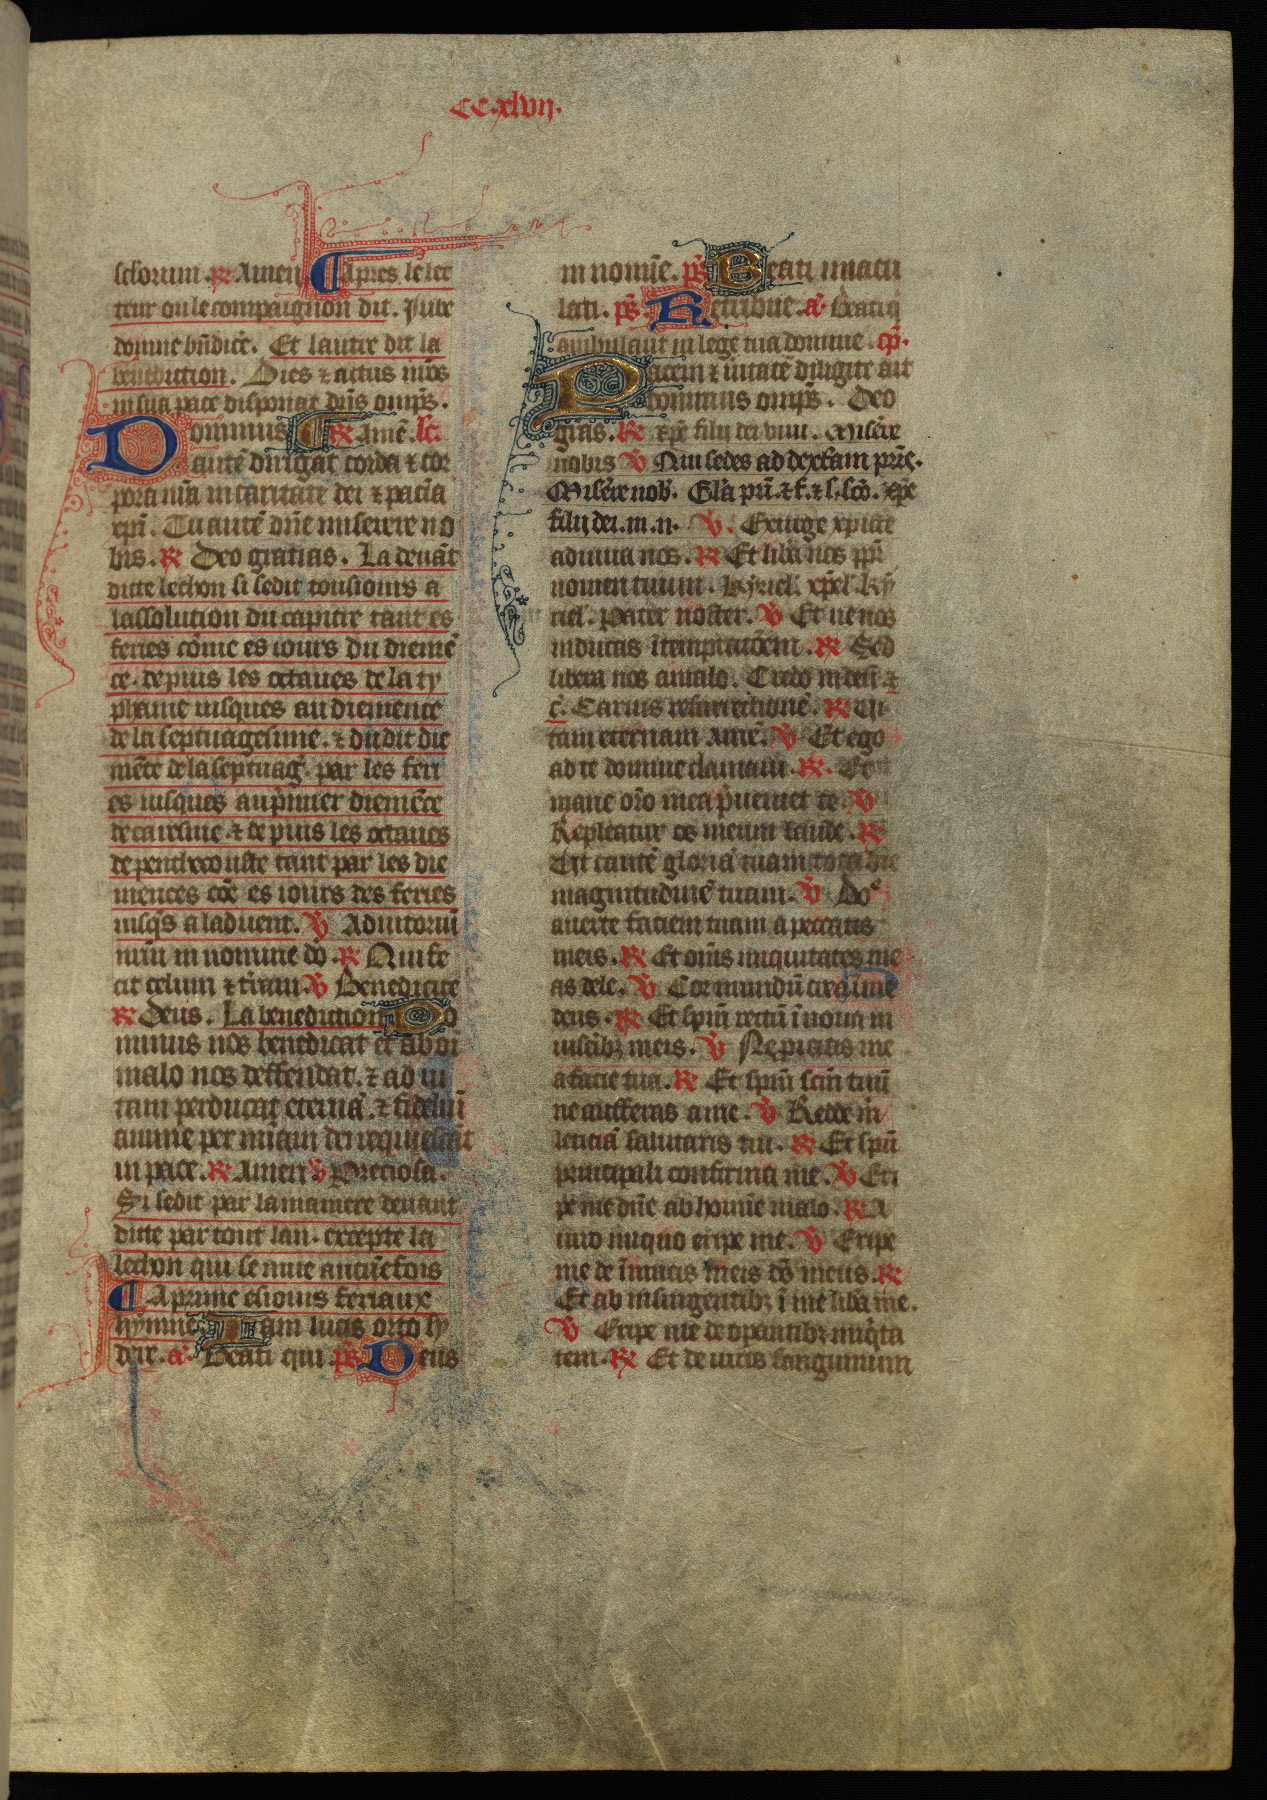 CC.xlvij.
sclorum. ℟ Amen ¶ Apres le lec
teur ou le compaignon dit. Jube
domne bn̄dicē. Et lautre dit la
benediction. Dies ⁊ actus nr̄os
in sua pace disponat dn̄s omp̄s.
Dominus ¶ ℟ amē. lc̄.
autē dirigat corda ⁊ cor
pora nr̄a in caritate dei ⁊ patīa
xpī. Tu autē dn̄e miserere no
bis. ℟ Deo gratias. La deuāt
dicte lechon si sedit tousiours a
lassolution du capitre tant es
feries cōme es iours du diemē
ce. depuis les octaues de la ty
phanie iusques au diemence
de la septuagesime. ⁊ du dit die
mēce de la septuaḡ. par les feri
es iusques au pr̄mier diemēce
de caresme. ⁊ depuis les octaues
de penthecouste tant par les die
mences cōe es iours des feries
iusqs a laduent. ℣ Adiutoriū
nr̄m in nomine dō. ℟ Qui fe
cit celum ⁊ tr̄ram. ℣ Benedicite
℟ Deus. La benediction Do
minus nos benedicat et ab oī
malo nos deffendat. ⁊ ad ui
tam perducat eternā. ⁊ fideliū
anime per mīam dei requiescāt
in pace. ℟ Amen ℣ Preciosa.
Si sedit par la maniere deuant
dicte par tout lan. excepte la
lechon qui se mue aucūefois
¶ A prime es iours feriaux
hymne Iam lucis orto sy
dere. a. Beati qui ps̄ Deus
in nomīe. ps̄ Beati inmacu
lati. ps̄ Retribue. a. Beati q
ambulant in lege tua domine. cp̄.
Pacem ⁊ ūitatē diligite ait
dominus omp̄s. Deo
grās. ℟ xp̄e fili dei viui. Misere
nobis ℣ Qui sedes ad dexteram prīs.
Miserē nob̄. Glā prī. ⁊ f. ⁊ s. scō. xp̄e
fili dei. m. n. ℣. Exurge xpiste
adiuua nos. ℟ Et libā nos ppr̄
nomen tuum. kyriel. xp̄el. ky
riel. Pater noster. ℣ Et ne nos
inducas ītemptacōem. ℟ Sed
libera nos amalo. Credo in deū ⁊
c̄. Carnis resurrectionē. ℟ Ui
tam eternam amē. ℣ Et ego
ad te domine clamaui. ℟. Et
mane or̄o mea pr̄ueniet te. ℣
Repleatur os meum laude. ℟
Ut cantē gloriā tuam tota die
magnitudinē tuam. ℣ Do
auerte faciem tuam a peccatis
meis. ℟ Et om̄s iniquitates me
as dele. ℣ Cor mundū crea ī me
deus. ℟ Et spm̄ rectū īnoua in
uiscibꝫ meis. ℣ Ne picias me
a facie tua. ℟ Et spm̄ scm̄ tuū
ne aufferas a me. ℣ Redde m̄
leticiā salutaris tui. ℟ Et spū
principali confirma me. ℣ Eri
pe me dn̄e ab homīe malo. ℟ A
uiro iniquo eripe me. ℣ Eripe
me de īimicis meis ds̄ meus. ℟
Et ab insurgentibꝫ ī me libā me.
℣ Eripe me de operantibꝫ iniqta
tem. ℟ Et de uiris sanguinum